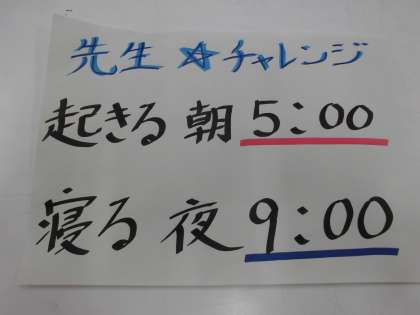 先生☆チャレンジ
起きる 朝 5:00
寝る 夜 9:00